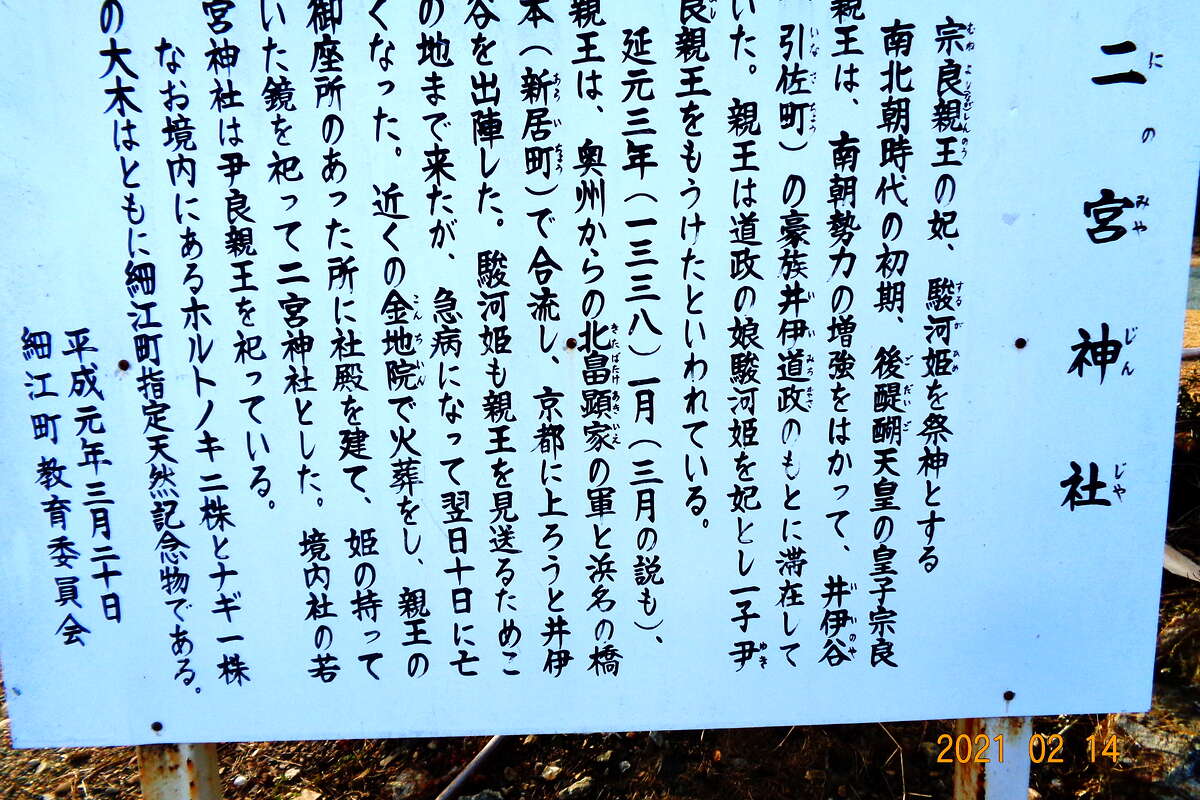 二宮神社
にのみやじんじや
宗良親王の妃、駿河姫を祭神とする
南北朝時代の初期、後醍醐天皇の皇子宗良
親王は、南朝勢力の増強をはかって、井伊谷
引佐町)の豪族井伊道政のもとに滞在して
いた。親王は道政の娘駿河姫を妃とし一子尹
良親王をもうけたといわれている。
延元三年(一三三八)一月(三月の説も)、
親王は、奥州からの北畠顕家の軍と浜名の橋
本(新居町)で合流し、京都に上ろうと井伊
谷を出陣した。駿河姫も親王を見送るためこ
の地まで来たが、急病になって翌日十日に亡
くなった。近くの金地院で火葬をし、親王の
御座所のあった所に社殿を建て、姫の持って
いた鏡を祀って二宮神社とした。境内社の若
宮神社は尹良親王を祀っている。
なお境内にあるホルトノキ二株とナギ一株
の大木はともに細江町指定天然記念物である。
平成元年三月二十日
細江町教育委員会
2021 02 14